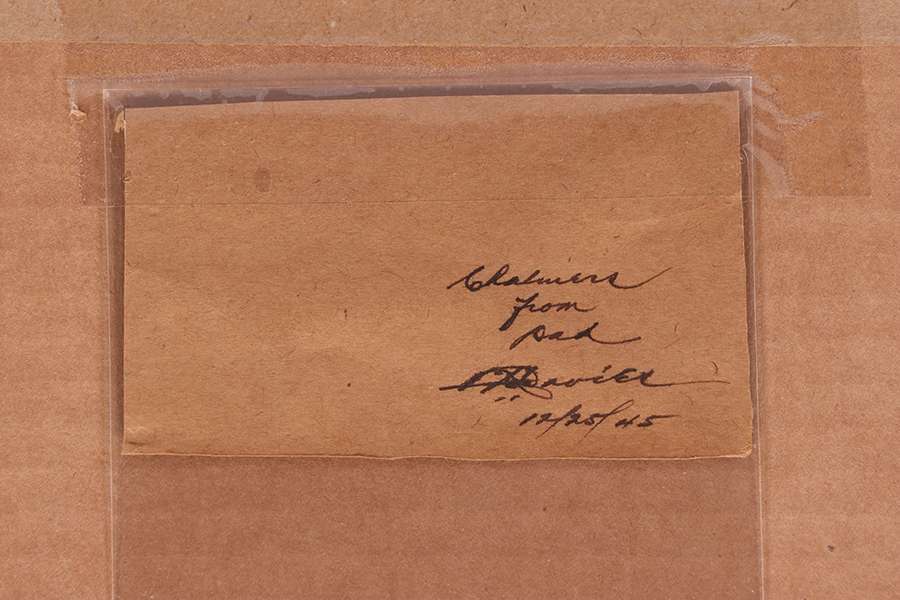 Chalmers
from
Dad
Davies
12/25/45